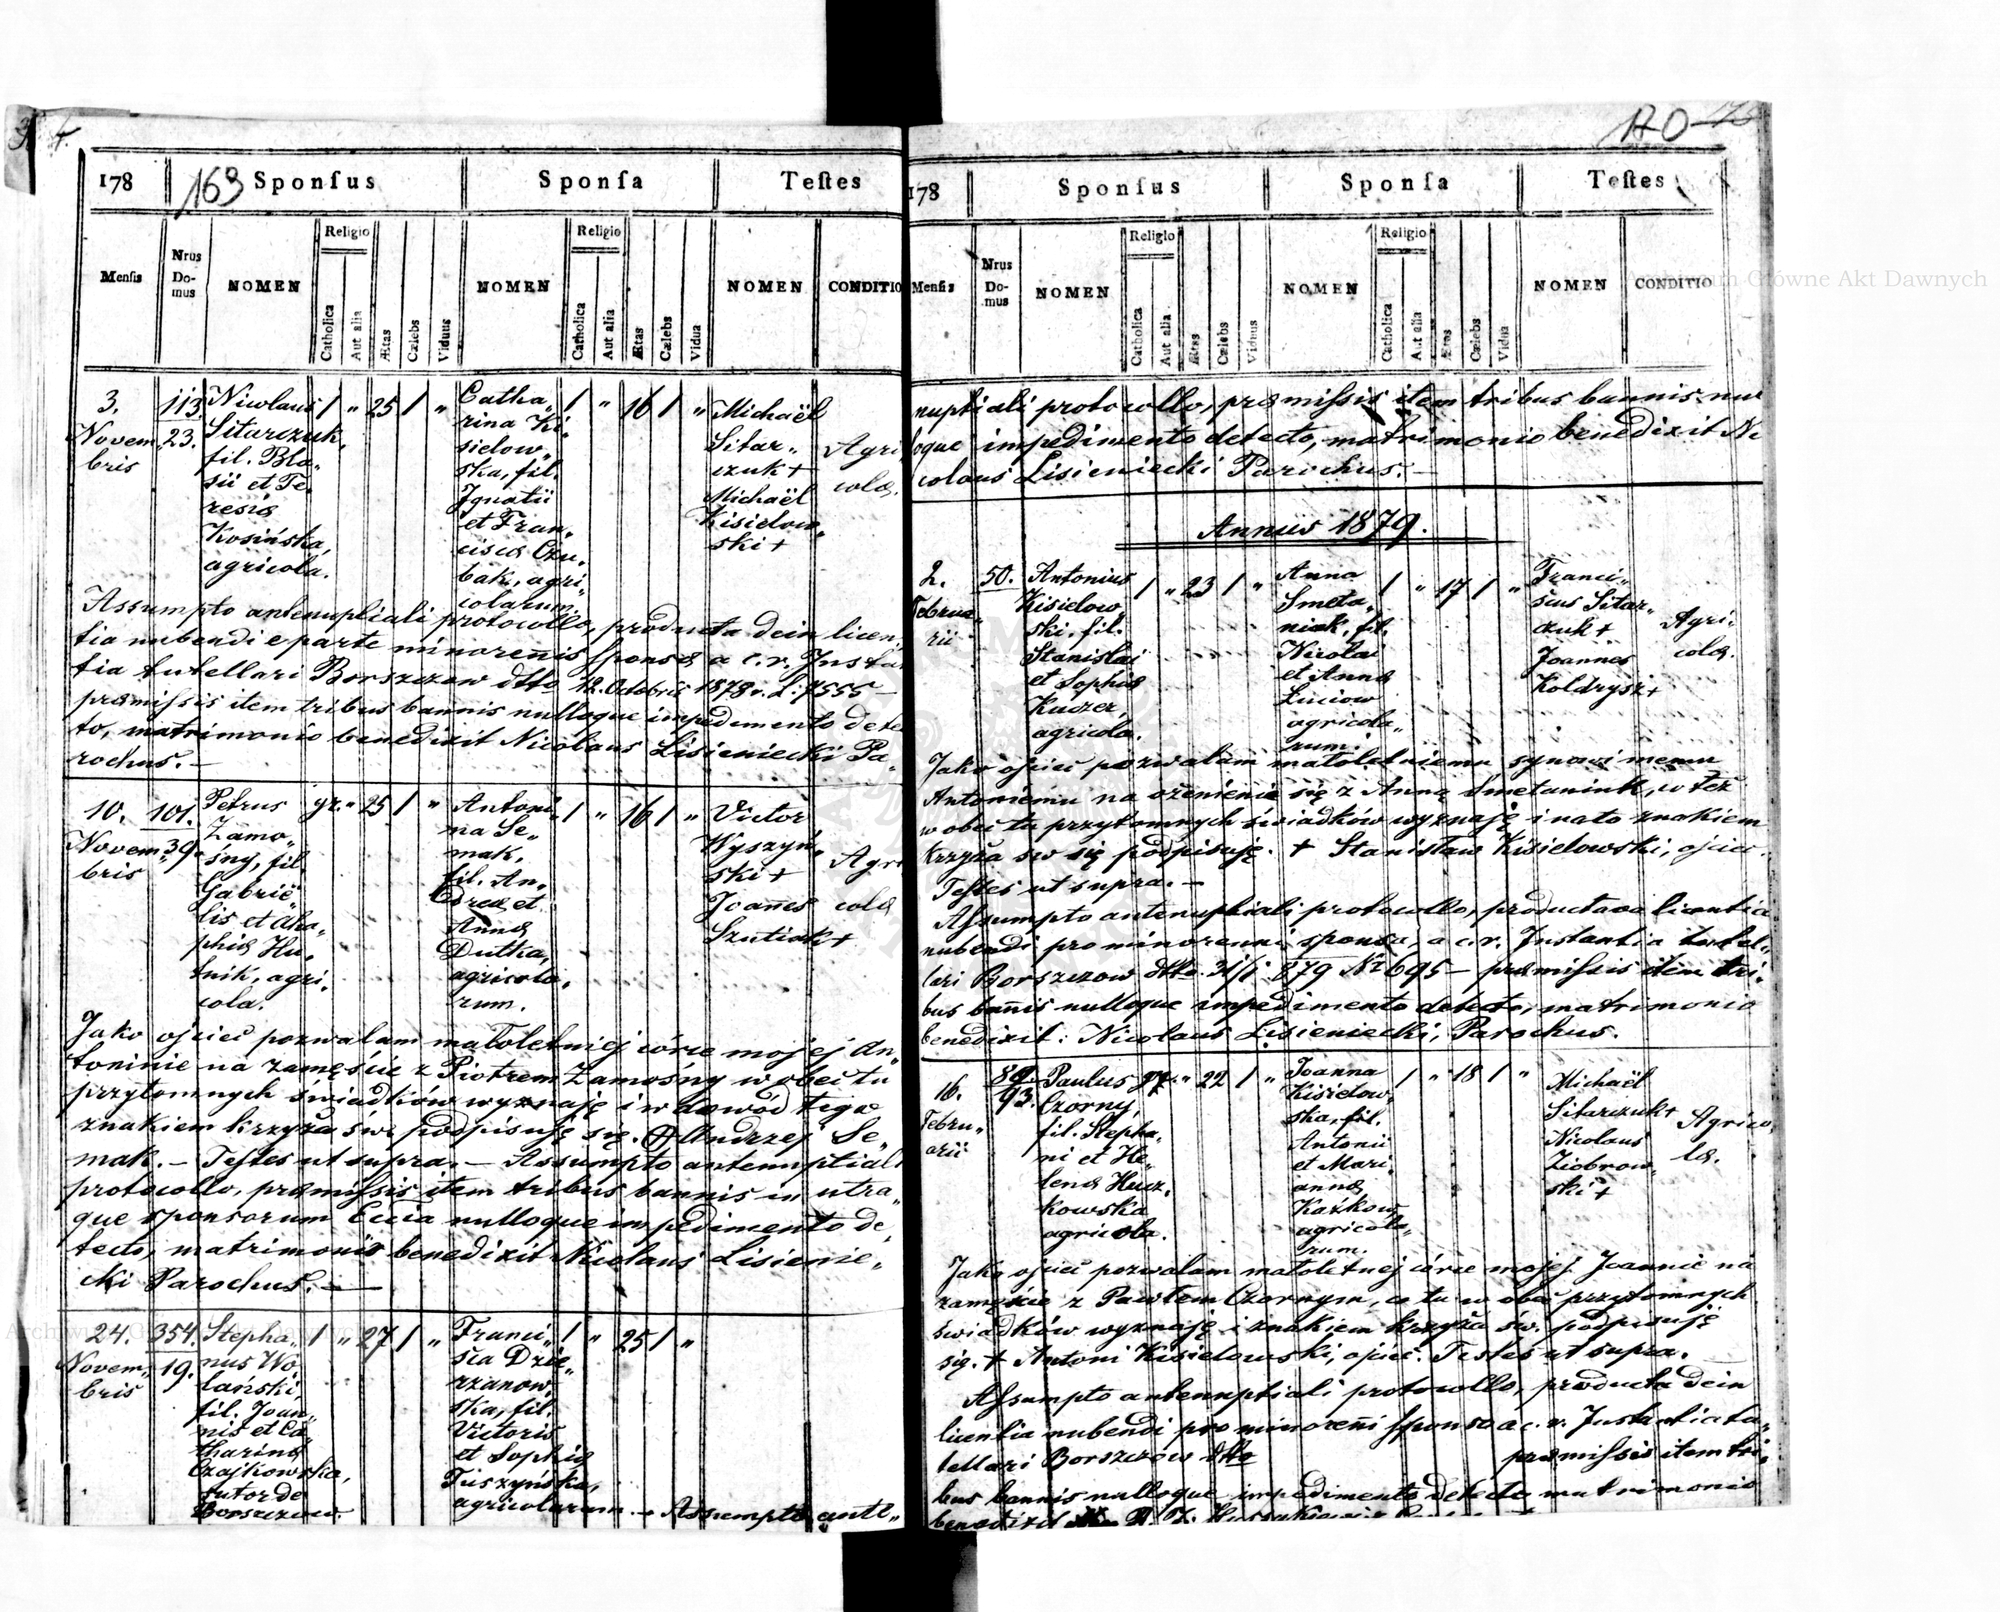 178 169 Sponſus Sponſa Teſtes
Menſis Nrus Do- mus NOMEN Religio Catholica Aut alia Ætas Cælebs Viduus NOMEN Religio Catholica Aut alia Ætas Cælebs Vidua NOMEN CONDITIO
3. Novem„ bris
113. 23.
Nicolaus
Sitarczuk,
fil. Bla„
sii et Te„
resiæ
Kosińska,
agricola.
1 „ 25 1 „
Catha„
rina Ki„
sielow„
ska, fil.
Ignatii
et Fran„
ciscæ Czu„
bak, agri„
colarum.
1 „ 16 1 „
Michaël
Sitar„
czuk +
Michaël
Kisielow„
ski +
Agri„
colæ.
Assumpto antenuptiali protocollo, producta dein licen„
tia nubendi e parte minoreñis sponsæ a c. r. Instan
tia tutellari Borszczow dtto 12. Octobris 1878 r. L: 7555 —
præmissis item tribus bannis nulloque impedimento dete
to, matrimonio benedixit Nicolaus Lisieniecki Pa„
rochus. —
10. Novem„ bris
101. 39.
Petrus
Zamo„
śny, fil.
Gabrie„
lis et Aha„
phiæ Hu„
tnik, agri„
cola.
gr. „ 25 1 „
Antoni„
na Se„
mak,
fil. An„
dreæ et
Annæ
Dutka,
agricola„
rum.
1 „ 16 1 „
Victor
Wyszyń„
ski +
Joañes
Szutiak +
Agri
colæ
Jako ojciec pozwalam małoletniej córce mojej An„
toninie na zamęście z Piotrem Zamośny w obec tu
przytomnych świadków wyznaję i w dowód tego
znakiem krzyża św. podpisuję się. + Andrzej Se„
mak. — Testes ut supra. — Assumpto antenuptiali
protocollo, præmissis item tribus bannis in utra„
que sponsorum Eccia nulloque impedimento de„
tecto, matrimonio benedixit Nicolaus Lisienie„
cki Parochus. —
24. Novem„ bris
354. 19.
Stepha„
nus Wo„
lański,
fil. Joan„
nis et Ca„
tharinæ
Czajkowska,
sutor de
Borszczow
1 „ 27 1 „
Franci„
sca Dzie„
rzanow„
ska, fil.
Victoris
et Sophiæ
Tuszyńska,
agricolarum. — Assumpto ante„
1 „ 25 1 „
178 Sponſus Sponſa Teſtes 170
Menſis Nrus Do- mus NOMEN Religio Catholica Aut alia Ætas Cælebs Viduus NOMEN Religio Catholica Aut alia Ætas Cælebs Vidua NOMEN CONDITIO
nuptiali protocollo, præmissis item tribus bannis nul
loque impedimento detecto, matrimonio benedixit Ni
colaus Lisieniecki Parochus. —
Annus 1879.
2. Februa„ rii
50.
Antonius
Kisielow„
ski, fil.
Stanislai
et Sophiæ
Kuczer,
agricola.
1 „ 23 1 „
Anna
Smeta„
niuk, fil.
Nicolai
et Annæ
Luciow
agricola„
rum.
1 „ 17 1 „
Franci„
scus Sitar„
czuk +
Joannes
Koldrysz +
Agri„
colæ.
Jako ojciec pozwalam małoletniemu synowi memu
Antoniemu na ożenienie się z Anną Smetaniuk, co też
w obec tu przytomnych świadków wyznaję i na to znakiem
krzyża św się podpisuję. + Stanisław Kisielowski, ojciec.
Testes ut supra. —
Assumpto antenuptiali protocollo, producta licentia
nubendi pro minorenni sponsa, a c. r. Instantia tutel„
lari Borszczow dtto 31/1 879 Nr 695 — præmissis item tri„
bus bañis nulloque impedimento detecto, matrimonio
benedixit: Nicolaus Lisieniecki, Parochus.
16. Febru„ arii
89. 93.
Paulus
Czorny,
fil. Stepha„
ni et He„
lenæ Hucz„
kowska
agricola.
„ 22 1 „
Joanna
Kisielow„
ska, fil.
Antonii
et Mari„
annæ
Kaźkow,
agricola„
rum.
1 „ 18 1 „
Michaël
Sitarczuk +
Nicolaus
Ziobrow„
ski +
Agrico„
læ.
Jako ojciec pozwalam małoletnej córce mojej Joannie na
zamęście z Pawłem Czornym, co tu w obec przytomnych
świadków wyznaję i znakiem krzyża św. podpisuję
się. + Antoni Kisielowski, ojciec. Testes ut supra.
Assumpto antenuptiali protocollo, producta dein
licentia nubendi pro minoreñi sponsa a c. r. Instantia tu„
tellari Borszczow dtto præmissis item tri„
bus bannis nulloque impedimento detecto matrimonio
benedixit
Archiwum Główne Akt Dawnych